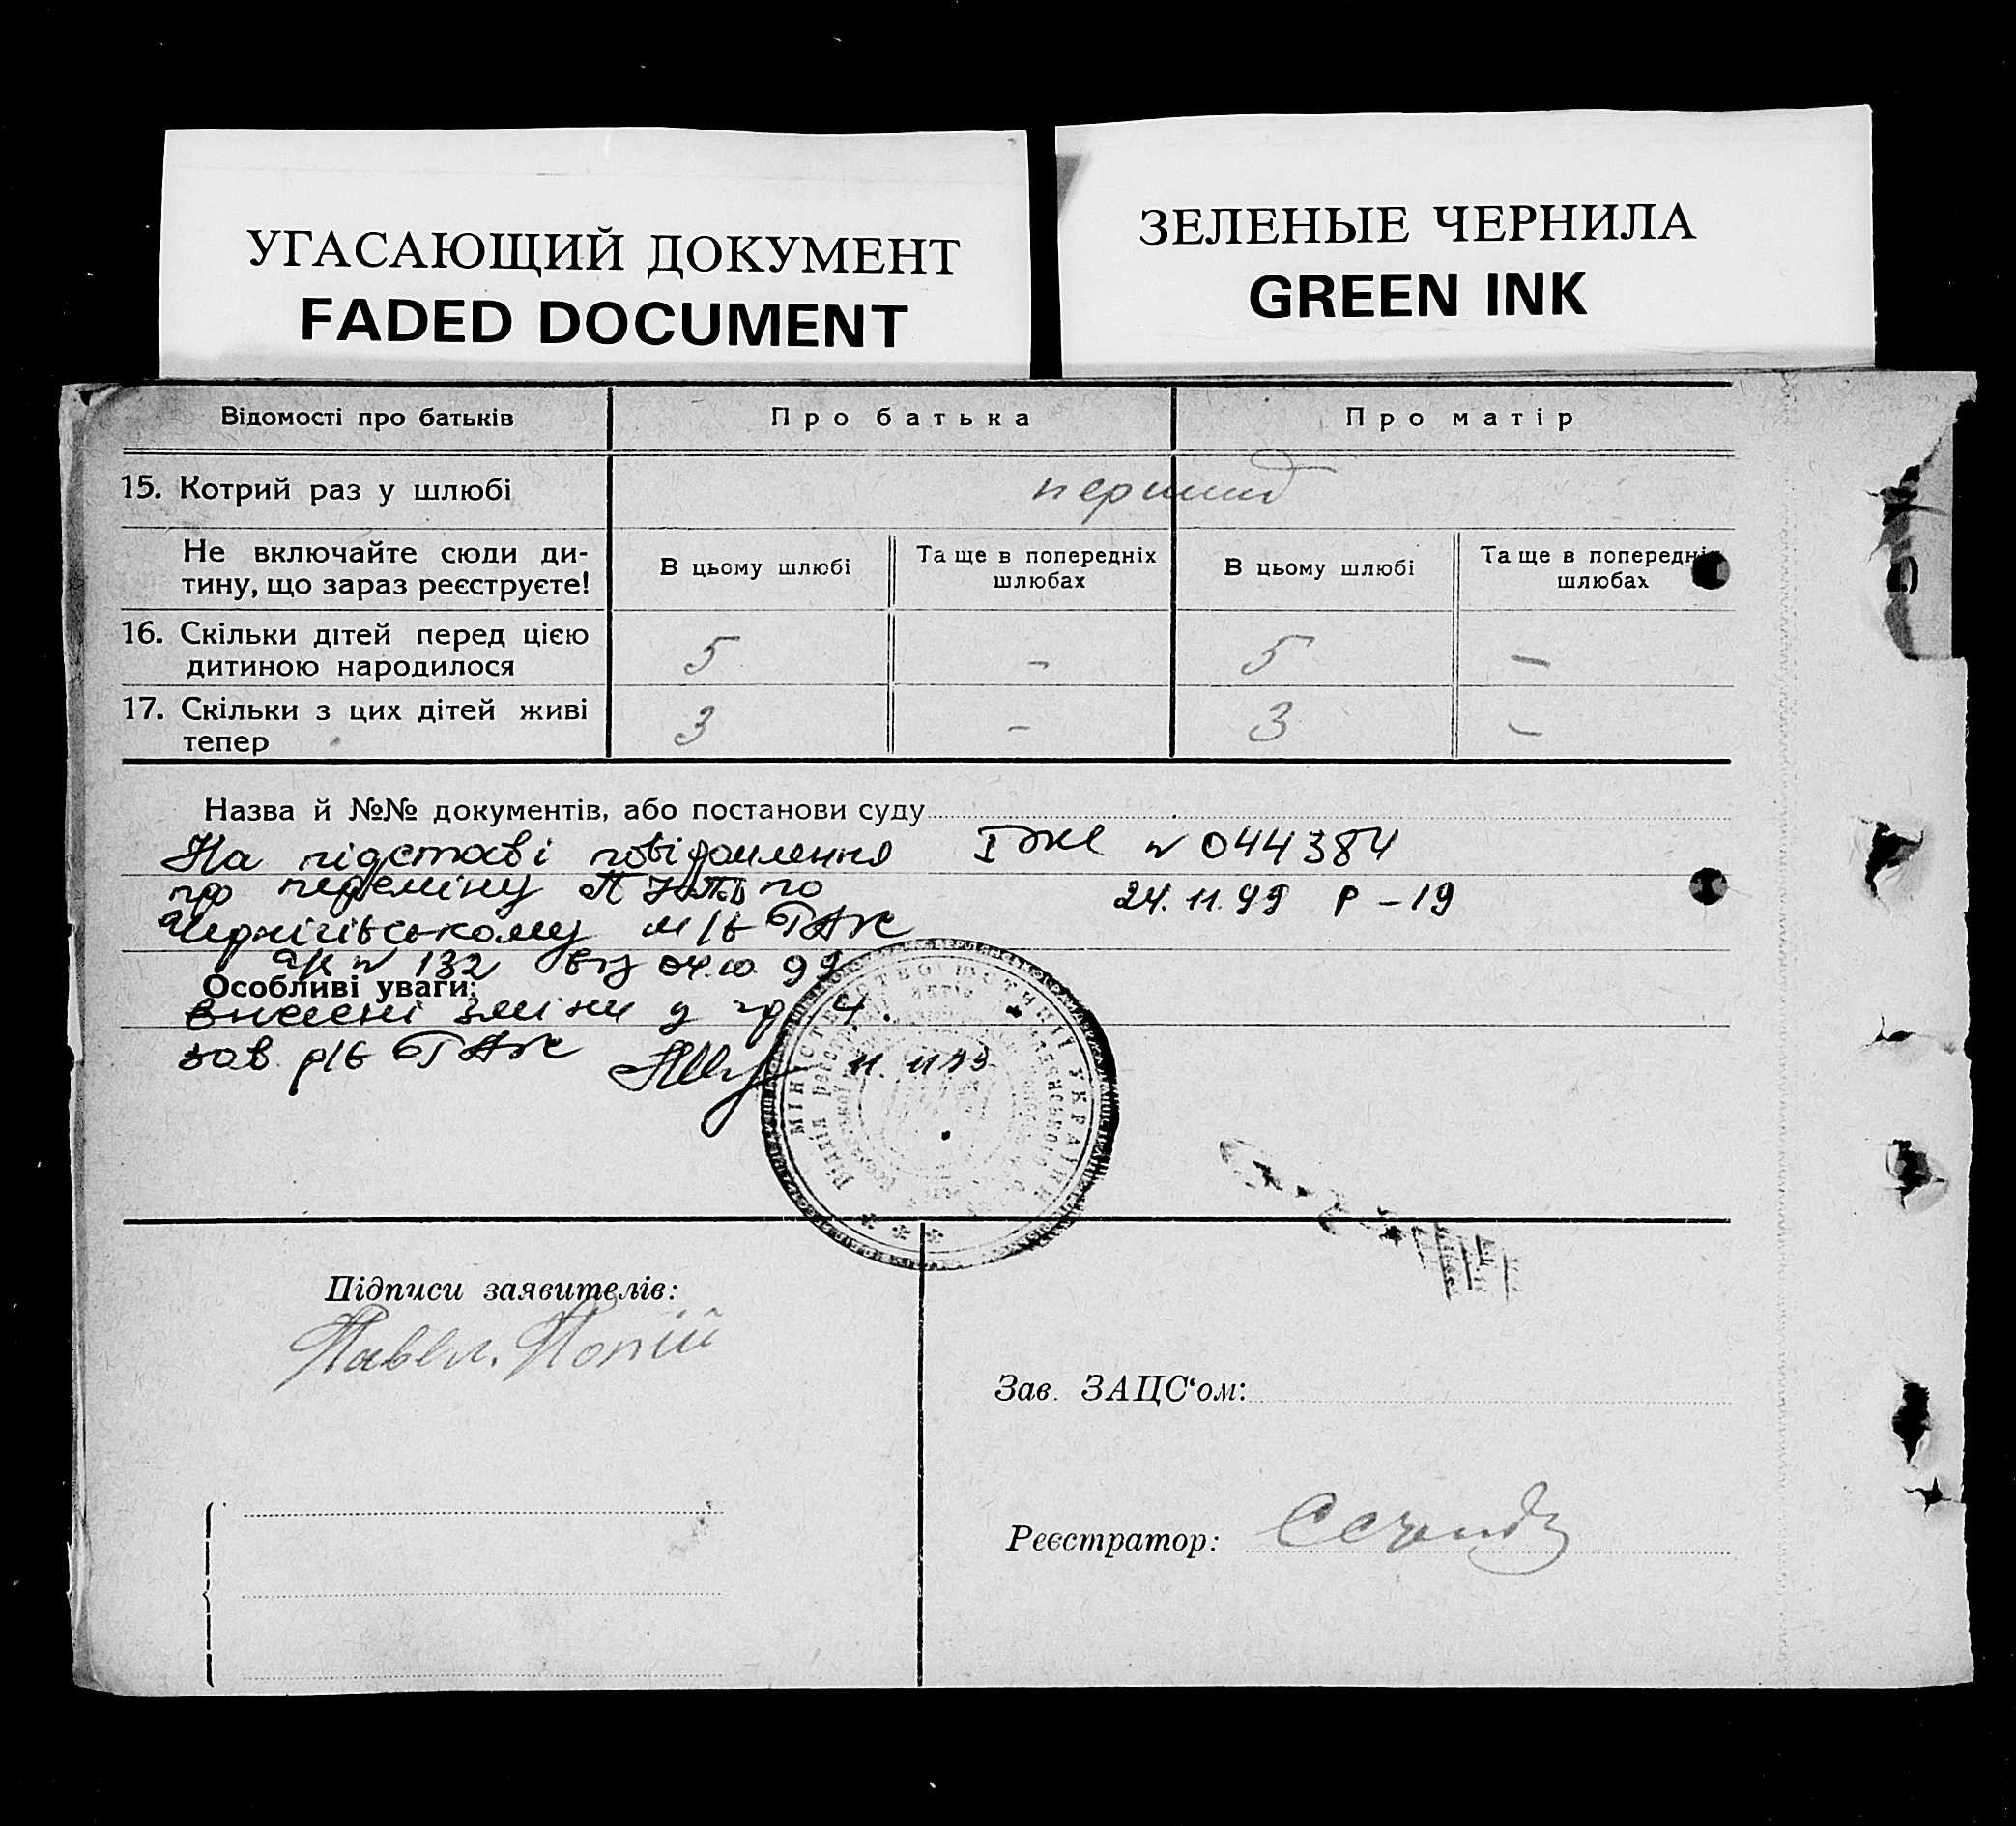 УГАСАЮЩИЙ ДОКУМЕНТ
FADED DOCUMENT
ЗЕЛЕНЫЕ ЧЕРНИЛА
GREEN INK
Відомості про батьків Про батька Про матір
15. Котрий раз у шлюбі перший
Не включайте сюди ди-
тину, що зараз реєструєте!
В цьому шлюбі
Та ще в попередніх
шлюбах
В цьому шлюбі
Та ще в попередніх
шлюбах
16. Скільки дітей перед цією
дитиною народилося
5 - 5 -
17. Скільки з цих дітей живі
тепер
3 - 3 -
Назва й №№ документів, або постанови суду
На підставі повідомлення І ЖК № 044384
про переміну по 24.11.99 р-19
Чернігівському м/в РАГС
№ 132 від 04.10.99
Особливі уваги:
внесені зміни у гр 4.
зав. р/в РАГС 11.11.99
МІНІСТЕРСТВО ЮСТИЦІЇ УКРАЇНИ
Відділ реєстрації актів
Підписи заявителів:
Павел. Попій
Зав. ЗАЦС'ом:
Реєстратор: